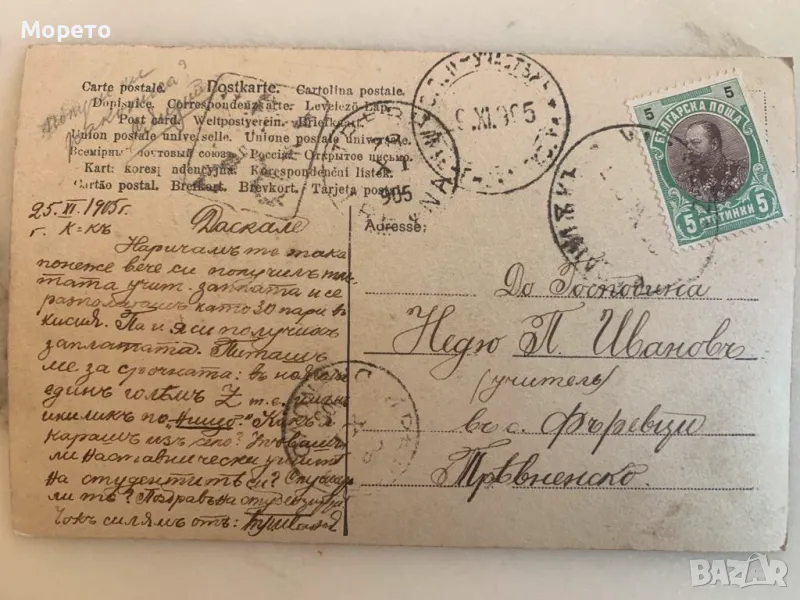 Морето
Carte postale. Postkarte. Cartolina postale.
Dopisnice. Correspondenzkarte. Levelező-Lap.
Post card. Weltpostverein. Briefkaart.
Union postale universelle. Unione postale universale.
Всемірный почтовый союзъ. Россія. Открытое письмо.
Kart: korespondencyjna. Korespondenční lístek.
Cartão postal. Brefkort. Brevkort. Tarjeta postal.
905
9.XI.905
5 5
БЪЛГАРСКА ПОЩА
5 СТОТИНКИ 5
25. XI. 1905 г.
г. К=къ Даскале
Наричамъ те така
понеже вече си получилъ
тата учит. заплата и се
като 30 пари въ
кисия. Па и я си получихъ
заплатата. Питашъ
ме за срочната: въ
единъ голѣмъ Z т. е.
по "нищо". Какъ я
карашъ изъ село?
ли наставнически
на студентитѣ си?
ли тѣ? Поздравъ на
Чокъ селямъ отъ:
Adresse:
До Господина
Недю П. Ивановъ
(учитель)
въ с. Фъревци
Трѣвненско.
BAZAR